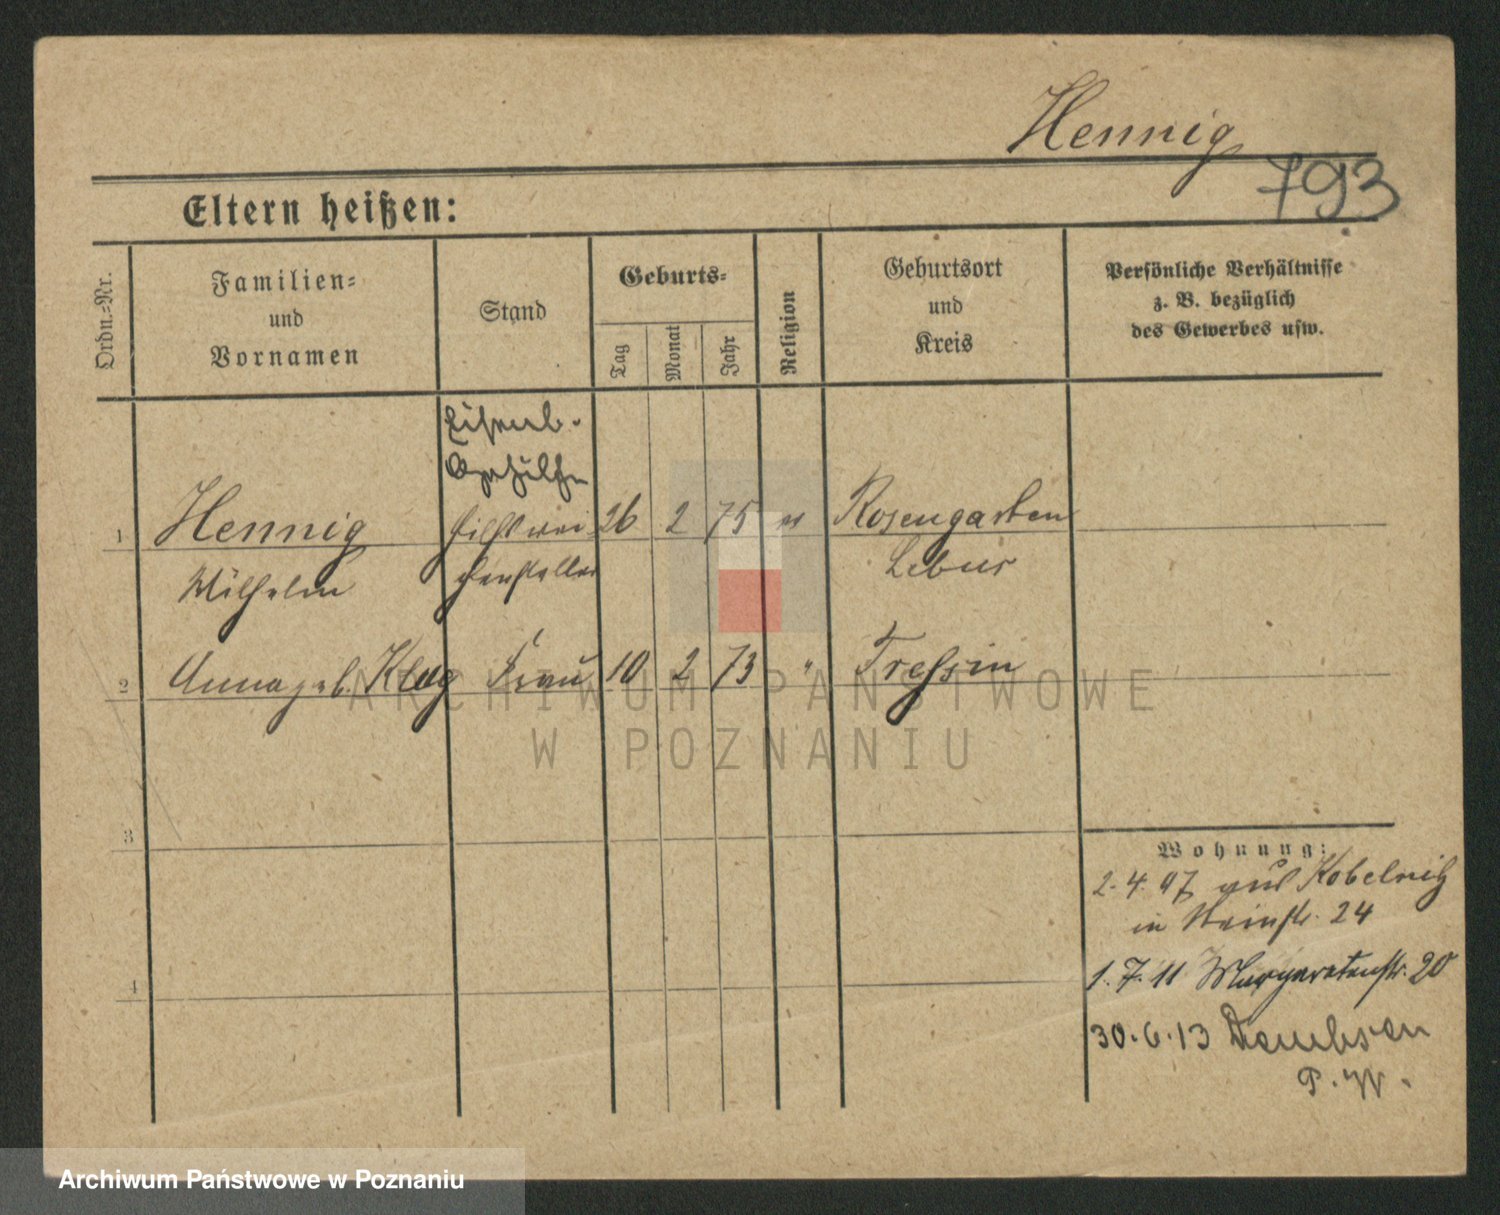 Hennig
793
Eltern heißen:
Ordn.=Nr.
Familien=
und
Vornamen
Stand
Geburts=
Tag
Monat
Jahr
Religion
Geburtsort
und
Kreis
Persönliche Verhältnisse
z. B. bezüglich
des Gewerbes usw.
Eisenb.
Gehülfe
1 Hennig Hilfswei 26 2 75 Rosengarten
Wilhelm chensteller Lebus
2 Anna geb. Klug Frau 10 2 73 " Treßin
3
4
Wohnung:
2.4.97 aus Kobelnitz
in 24
1.7.11 Margaretenstr. 20
30.6.13 Dembsen
P. W.
ARCHIWUM PAŃSTWOWE
W POZNANIU
Archiwum Państwowe w Poznaniu